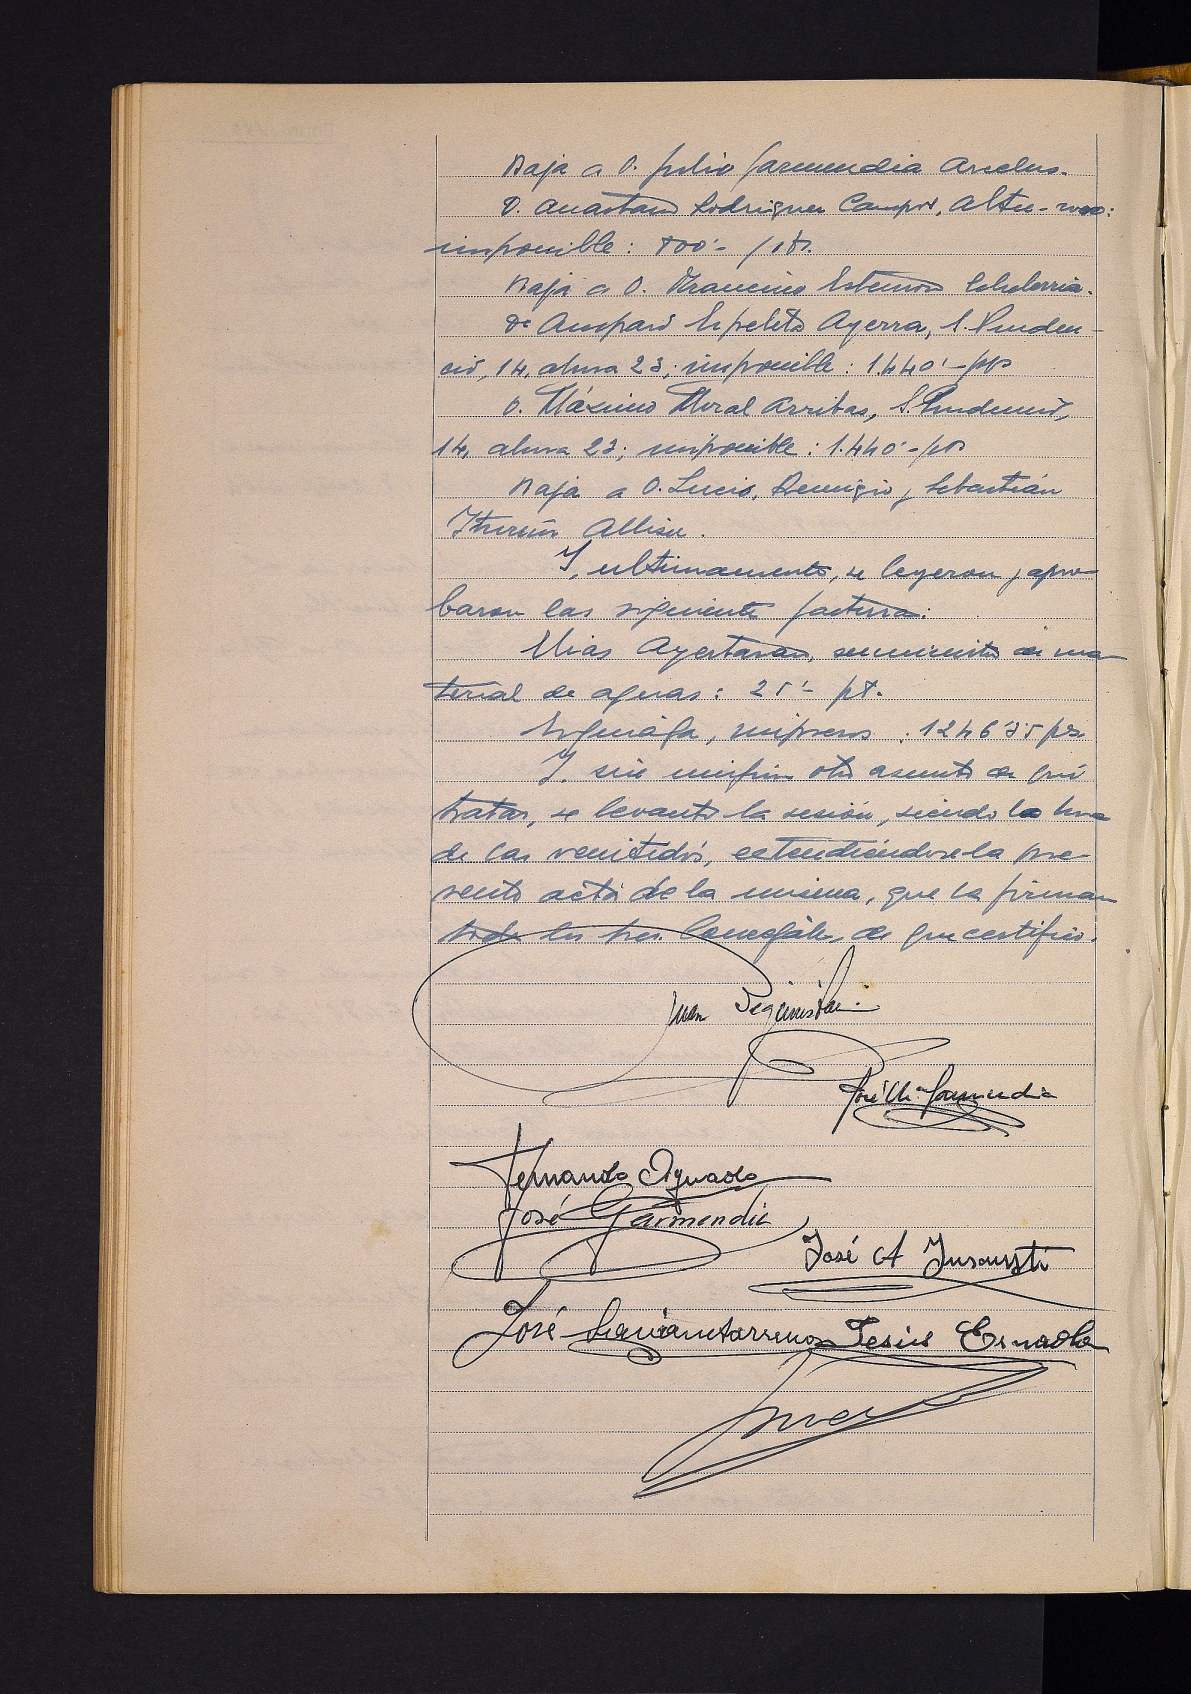 Baja a D. Julio Garmendia Arcelus.
D. Anastasio Rodriguez Campos,
imponible: 800'- pts.
Baja a D. Francisco Echeberria.
Dª Amparo Ezpeleta Ayerra, S. Pruden-
cio, 14, 23; imponible: 1.440'- pts
D. Máximo Moral Arribas, S. Prudencio,
14, 23; imponible: 1.440'- pts
Baja a D. Lucio, Remigio y Sebastián
Y, ultimamente, se leyeron y apro-
baron las siguientes facturas:
Elias Ayestaran, suministro de ma-
terial de aguas: 25'- pts.
impresos: 1246'35 pts.
Y sin ningún otro asunto de qué
tratar, se levantó la sesión, siendo la hora
de las veintidós, extendiéndose la pre-
sente acta de la misma, que la firman
todos los Sres. Concejales, de que certifico.
Juan
José Mª Garmendia
Fernando Aguado
José Garmendia
José A Insausti
José Jesús Ernaola